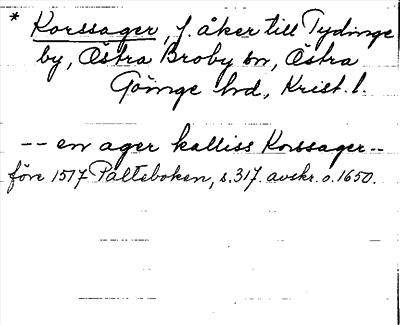 * Korssager, f. åker till Tydinge
by, Östra Broby sn, Östra
Göinge hd, Krist. l.
-- en ager kalliss Korssager --
före 1517 Palteboken, s. 317. avskr. o. 1650.